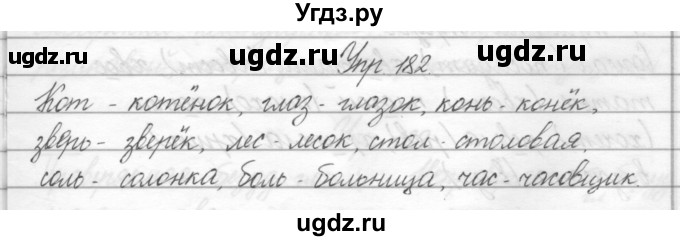 Угдз.ру
ugdz.ru ugdz.ru ugdz.ru
Упр 182
Кот - котёнок, глаз - глазок, конь - конёк,
зверь - зверёк, лес - лесок, стол - столовая,
соль - солонка, боль - больница, час - часовщик.
ugdz.ru ugdz.ru ugdz.ru
ugdz.ru